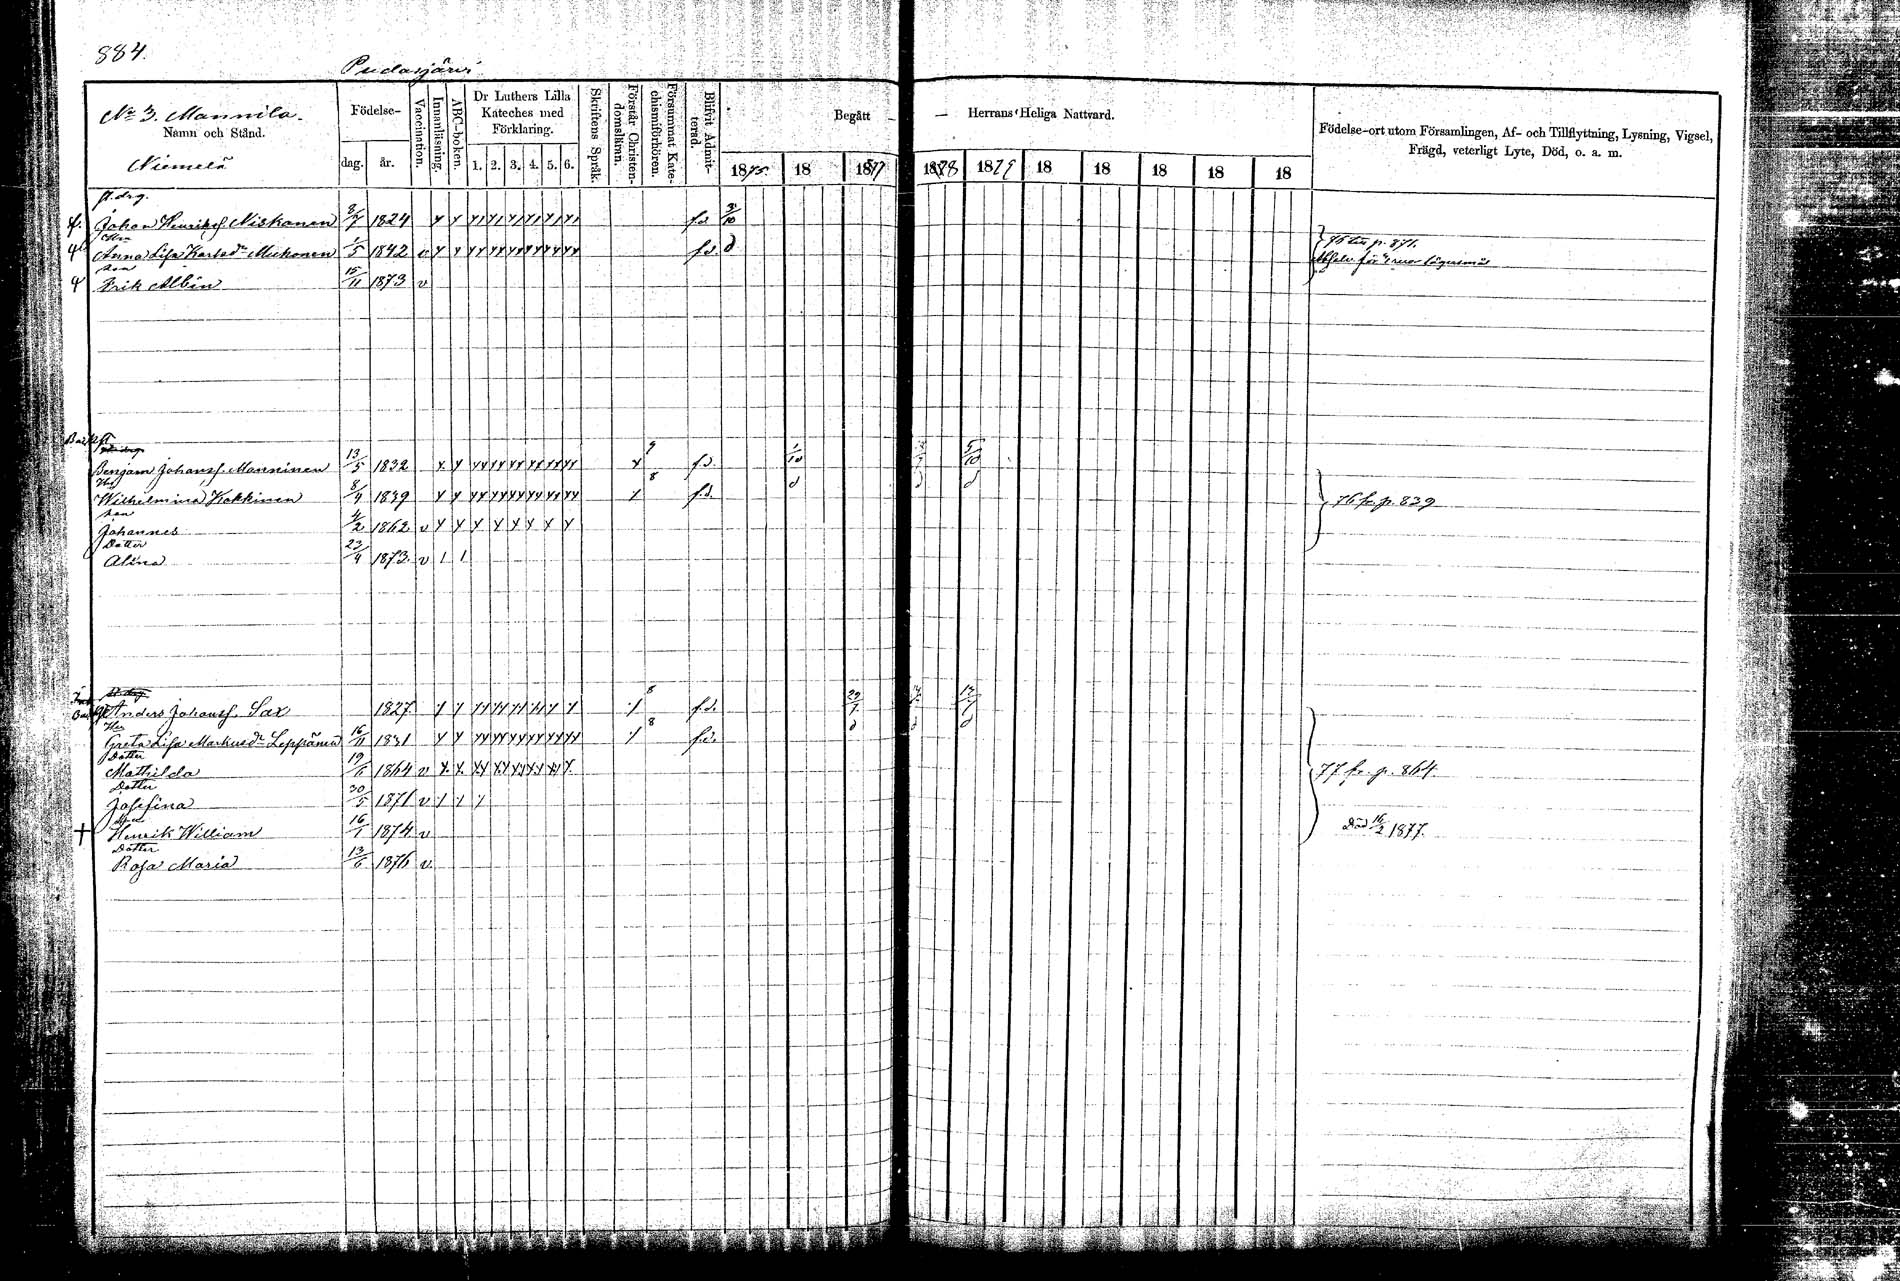 884.
Pudasjärvi
No 3. Mannila.
Namn och Stånd.
Niemelä
Födelse-
dag. år.
Vaccination.
Innanläsning.
ABC-boken.
Dr Luthers Lilla Kateches med Förklaring.
1. 2. 3. 4. 5. 6.
Skriftens Språk.
Förstår Christendomslämn.
Försummat Katechismiförhören.
Blifvit Admitterad.
Begått — — Herrans Heliga Nattvard.
1875 18 1877 1878 1879 18 18 18 18 18
Födelse-ort utom Församlingen, Af- och Tillflyttning, Lysning, Vigsel,
Frägd, veterligt Lyte, Död, o. a. m.
Johan Henrikss. Niskanen 8/7 1824 f.d. 3/10
Hu
Anna Lisa Karlsdr 1/5 1842 v f.d. 76 p. 871.
son
Erik Albin 15/11 1873 v
Benjam Johanss. Manninen 13/5 1832 9 f.d. 1/10 5/10
Hu
Wilhelmina Kokkinen 8/4 1839 8 f.d. 76 fr. p. 839
son
Johannes 4/2 1862 v
Dotter
Alina 23/4 1873. v
Anders Johanss. Sax 1827 8 f.d. 29/7
Hu
Greta Lisa Markusdr Leppänen 16/11 1831 8 f.d.
Dotter
Mathilda 19/6 1864 v 77 fr. p. 864.
Dotter
Josefina 30/5 1871 v
Henrik William 16/1 1874 v Död 16/2 1877.
Dotter
Rosa Maria 13/6 1876 v.